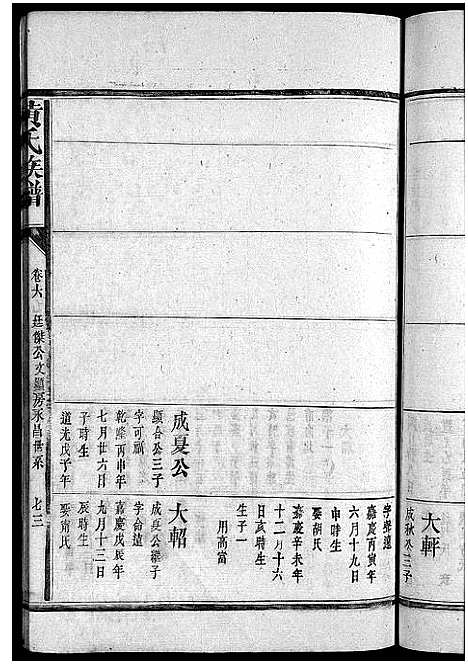 大軒
成秋公三子
字
嘉慶丙寅年
六月十九日
申時生
娶胡氏
嘉慶辛未年
十二月十六
日亥時生
生子一
用高富
成夏公
顯谷公三子
字可
乾隆丙申年
七月廿六日
子時生
道光戊子年
大韶
成夏公繼子
字俞遠
嘉慶戊辰年
九月十三日
辰時生
娶甯氏
黃氏族譜
卷六
廷傑公文顯房永昌世系
七三